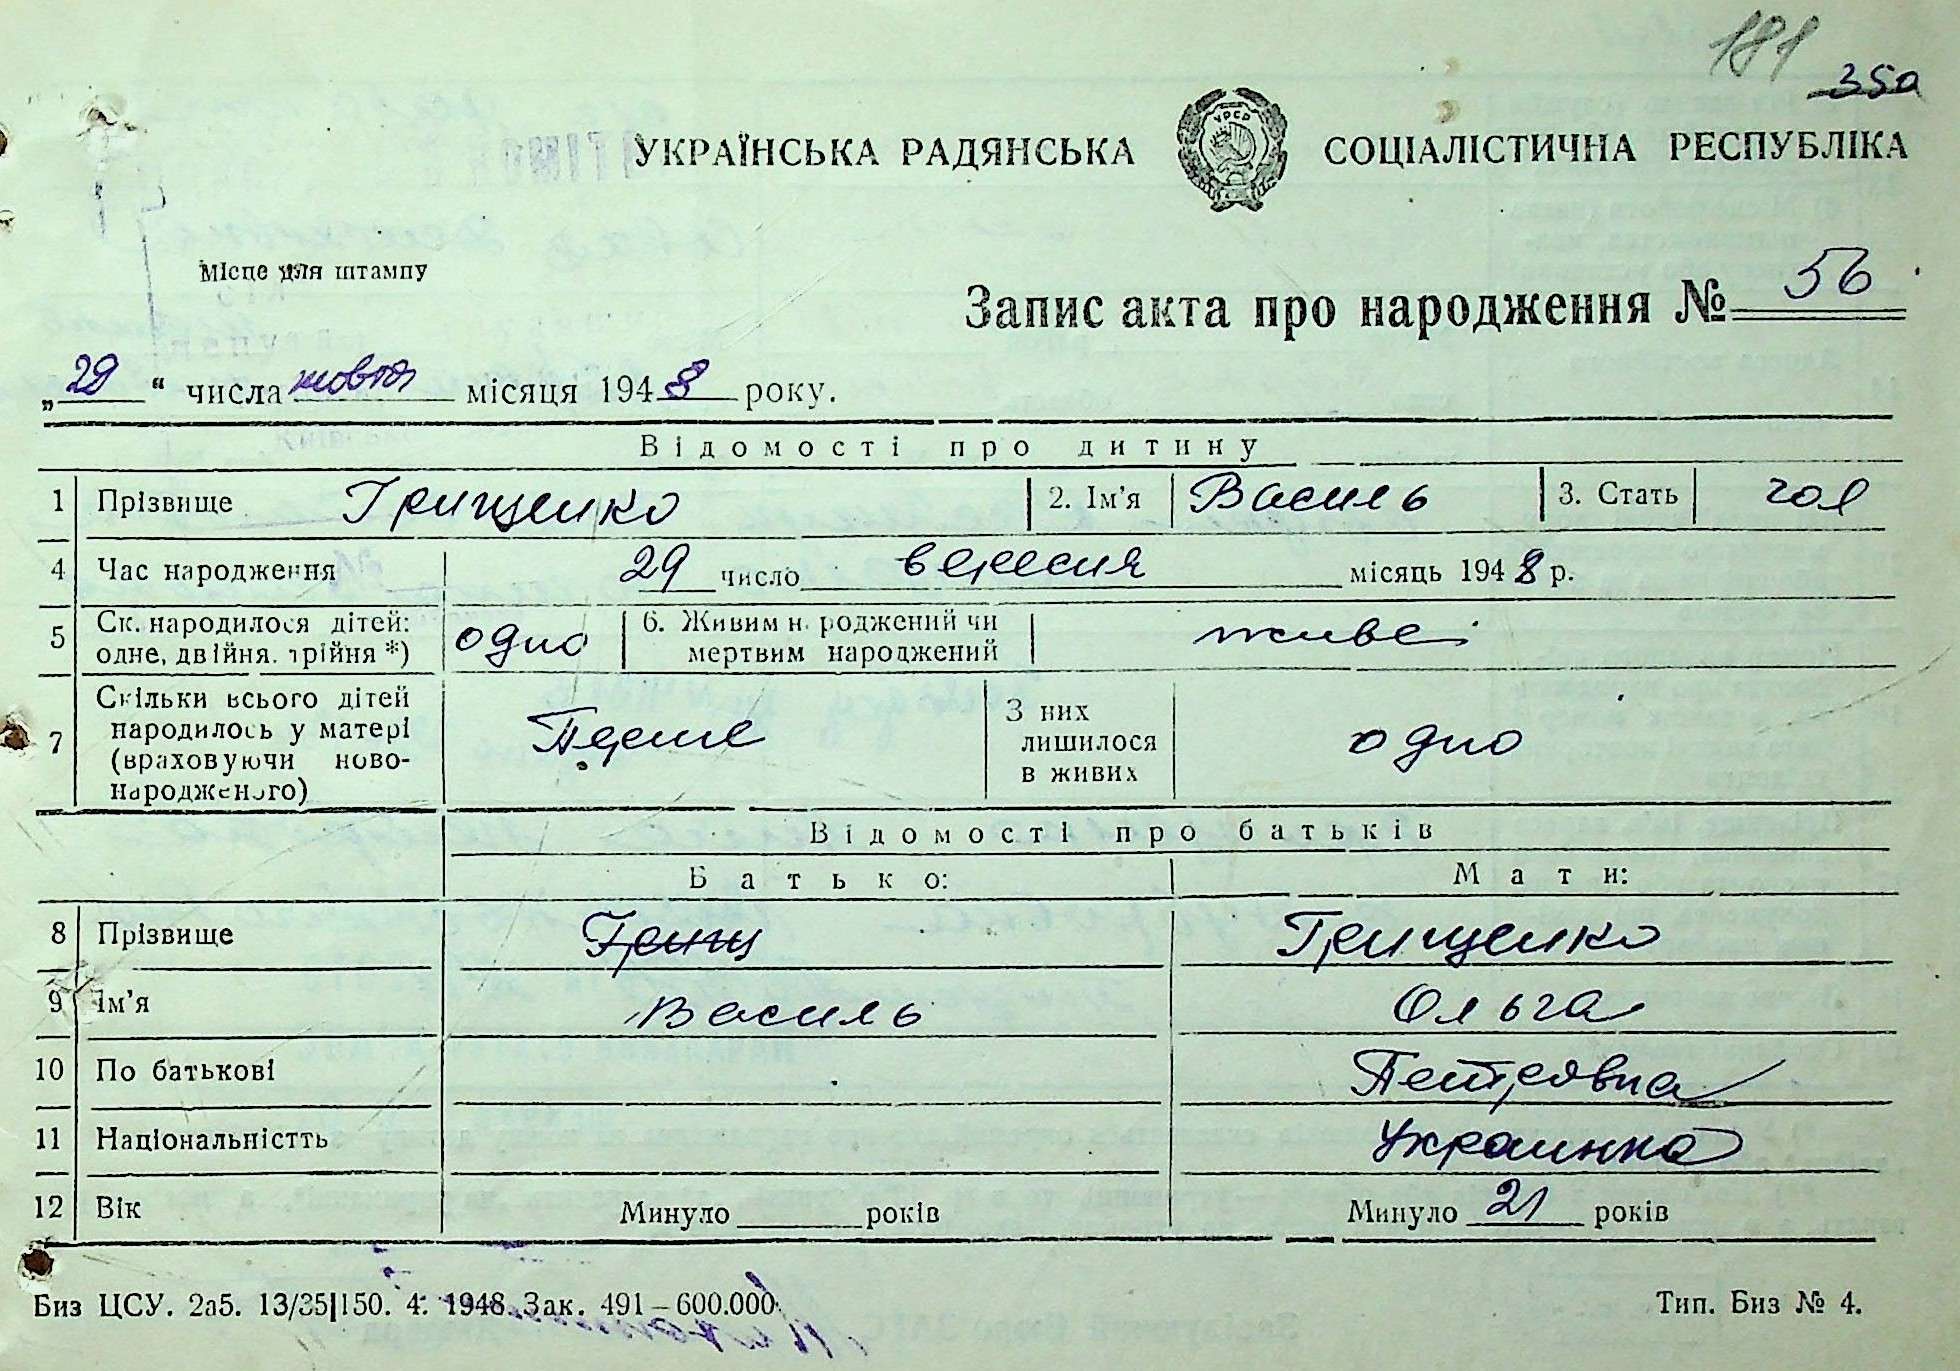 181
350
УКРАЇНСЬКА РАДЯНСЬКА СОЦІАЛІСТИЧНА РЕСПУБЛІКА
УРСР
Місце для штампу
Запис акта про народження № 56
„29“ числа жовтя місяця 1948 року.
Відомості про дитину
1 Прізвище Грищенко 2. Ім'я Василь 3. Стать чол
4 Час народження 29 число вересня місяць 1948 р.
5 Ск. народилося дітей: одно 6. Живим н. роджений чи живе
одне, двійня, трійня *) мертвим народжений
7 Скільки всього дітей народилось у матері (враховуючи ново-народженого) Перше З них лишилося в живих одно
Відомості про батьків
Батько: Мати:
8 Прізвище Грищ Грищенко
9 Ім'я Василь Ольга
10 По батькові Петровна
11 Національністть Украинка
12 Вік Минуло років Минуло 21 років
Биз ЦСУ. 2а5. 13/35|150. 4. 1948. Зак. 491 – 600.000 Тип. Биз № 4.